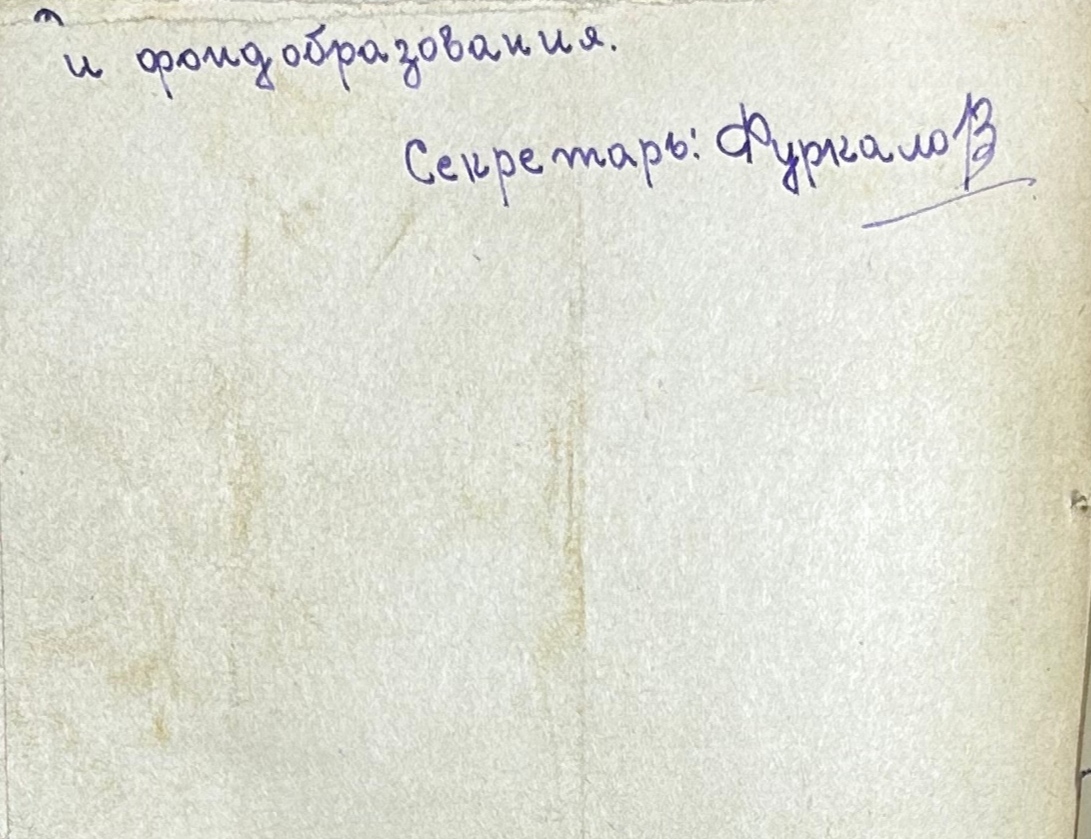 и фондобразования.
Секретарь: Фуркало В